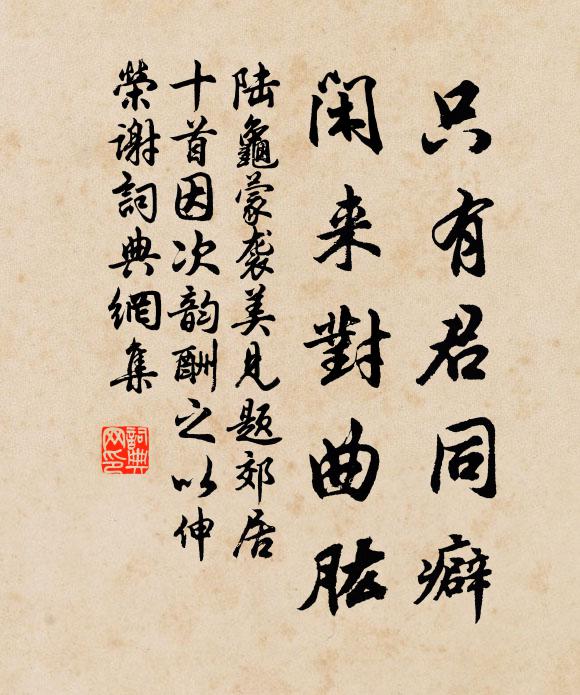 只有君同癖
闲来對曲肱
陆龜蒙袭美見题郊居
十首因次韵酬之以伸
荣谢詞典網集
詞典
网印